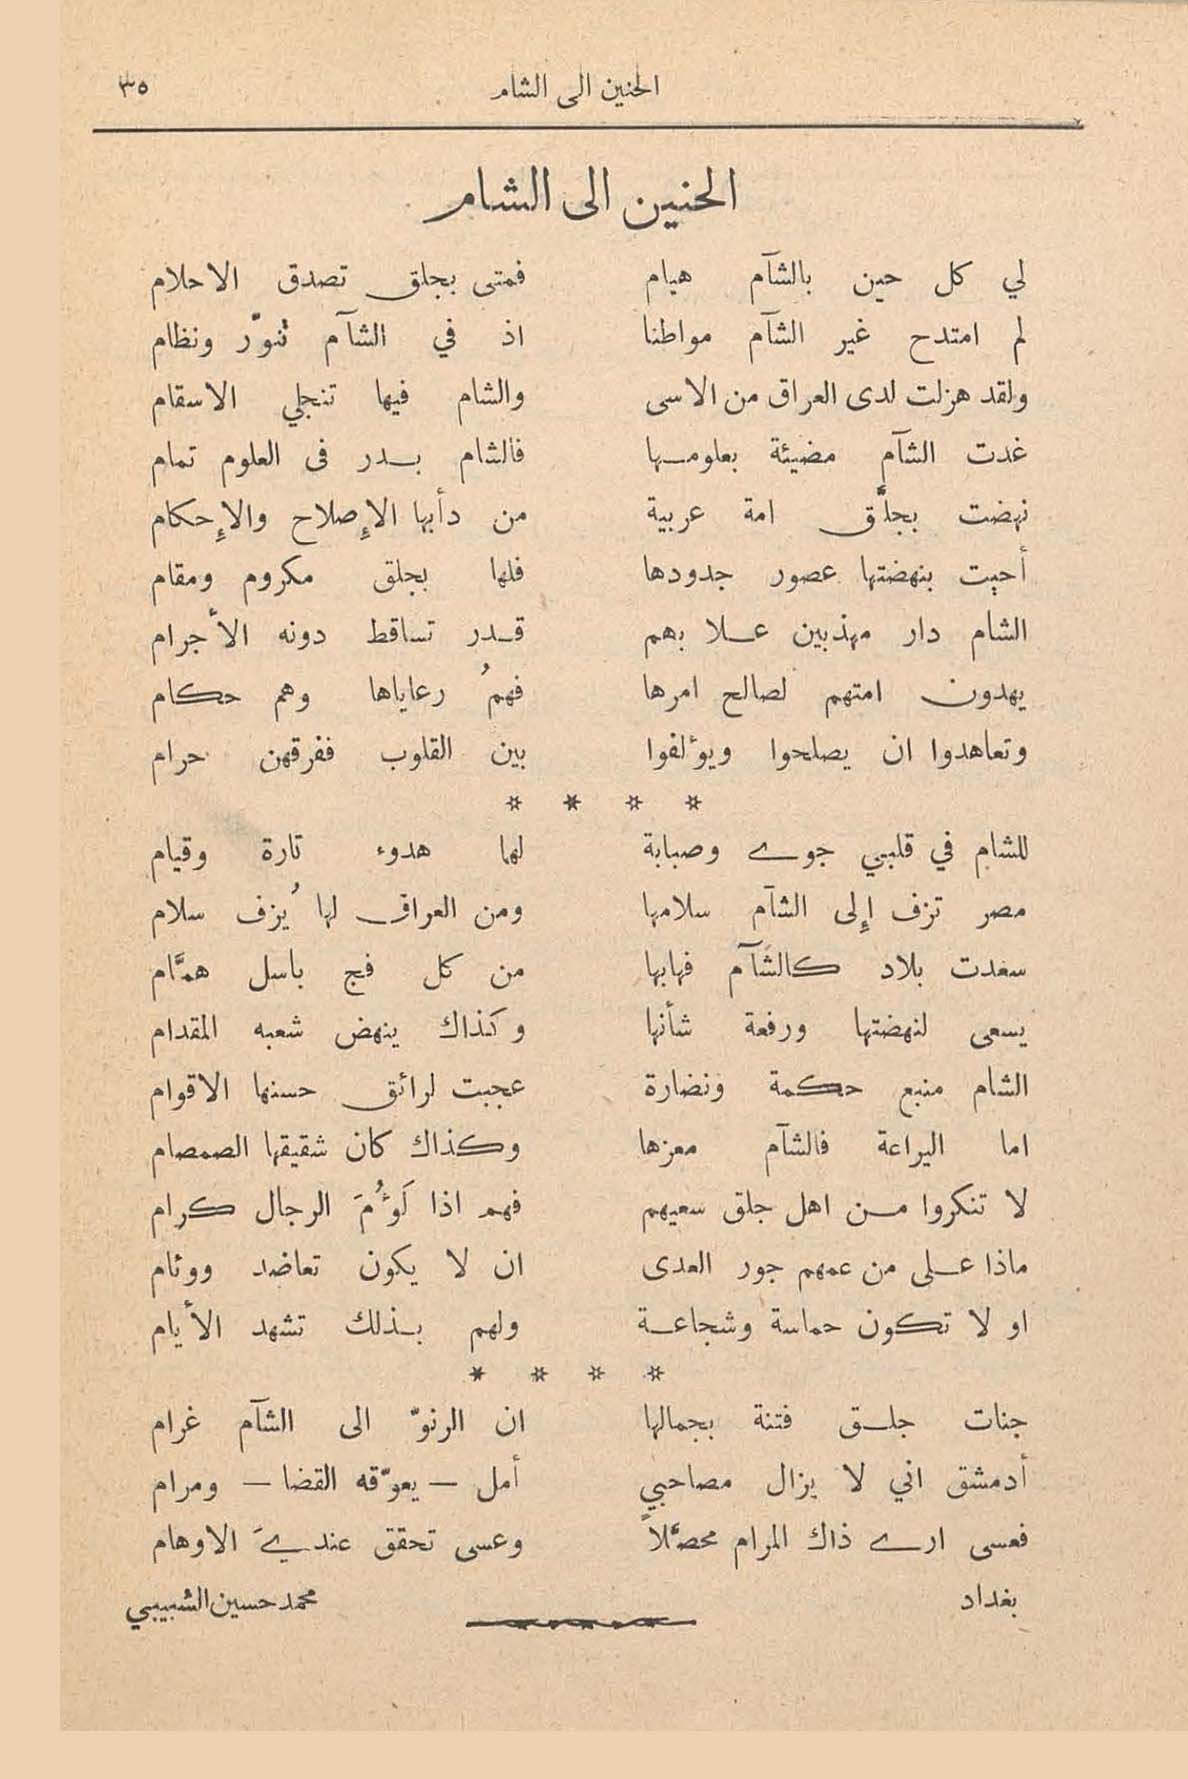 الحنين الى الشام ٣٥
الحنين الى الشام
لي كل حين بالشآم هيام فمتى بجلق تصدق الاحلام
لم امتدح غير الشآم مواطنا اذ في الشآم تنوّر ونظام
ولقد هزلت لدى العراق من الاسى والشام فيها تنجلي الاسقام
غدت الشآم مضيئة بعلومها فالشام بدر فى العلوم تمام
نهضت بجلَّق امة عربية من دأبها الإصلاح والإحكام
أحيت بنهضتها عصور جدودها فلها بجلق مكروم ومقام
الشام دار مهذبين علا بهم قدر تساقط دونه الأجرام
يهدون امتهم لصالح امرها فهمُ رعاياها وهم حكام
وتعاهدوا ان يصلحوا ويؤلفوا بين القلوب ففرقهن حرام
* * * *
للشام في قلبي جوے وصبابة لهما هدوء تارة وقيام
مصر تزف إلى الشآم سلامها ومن العراق لها يُزف سلام
سعدت بلاد كالشَآم فهابها من كل فج باسل همَّام
يسعى لنهضتها ورفعة شأنها وكذاك ينهض شعبه المقدام
الشام منبع حكمة ونضارة عجبت لرائق حسنها الاقوام
اما اليراعة فالشآم معزها وكذاك كان شقيقها الصمصام
لا تنكروا من اهل جلق سعيهم فهم اذا لَؤُمَ الرجال كرام
ماذا على من عمهم جور العدى ان لا يكون تعاضد ووئام
او لا تكون حماسة وشجاعة ولهم بذلك تشهد الأيام
* * * *
جنات جلق فتنة بجمالها ان الرنوّ الى الشآم غرام
أدمشق اني لا يزال مصاحبي أمل — يعوّقه القضا — ومرام
فعسى ارے ذاك المرام محصَّلاً وعسى تحقق عنديَ الاوهام
بغداد محمد حسين الشبيبي